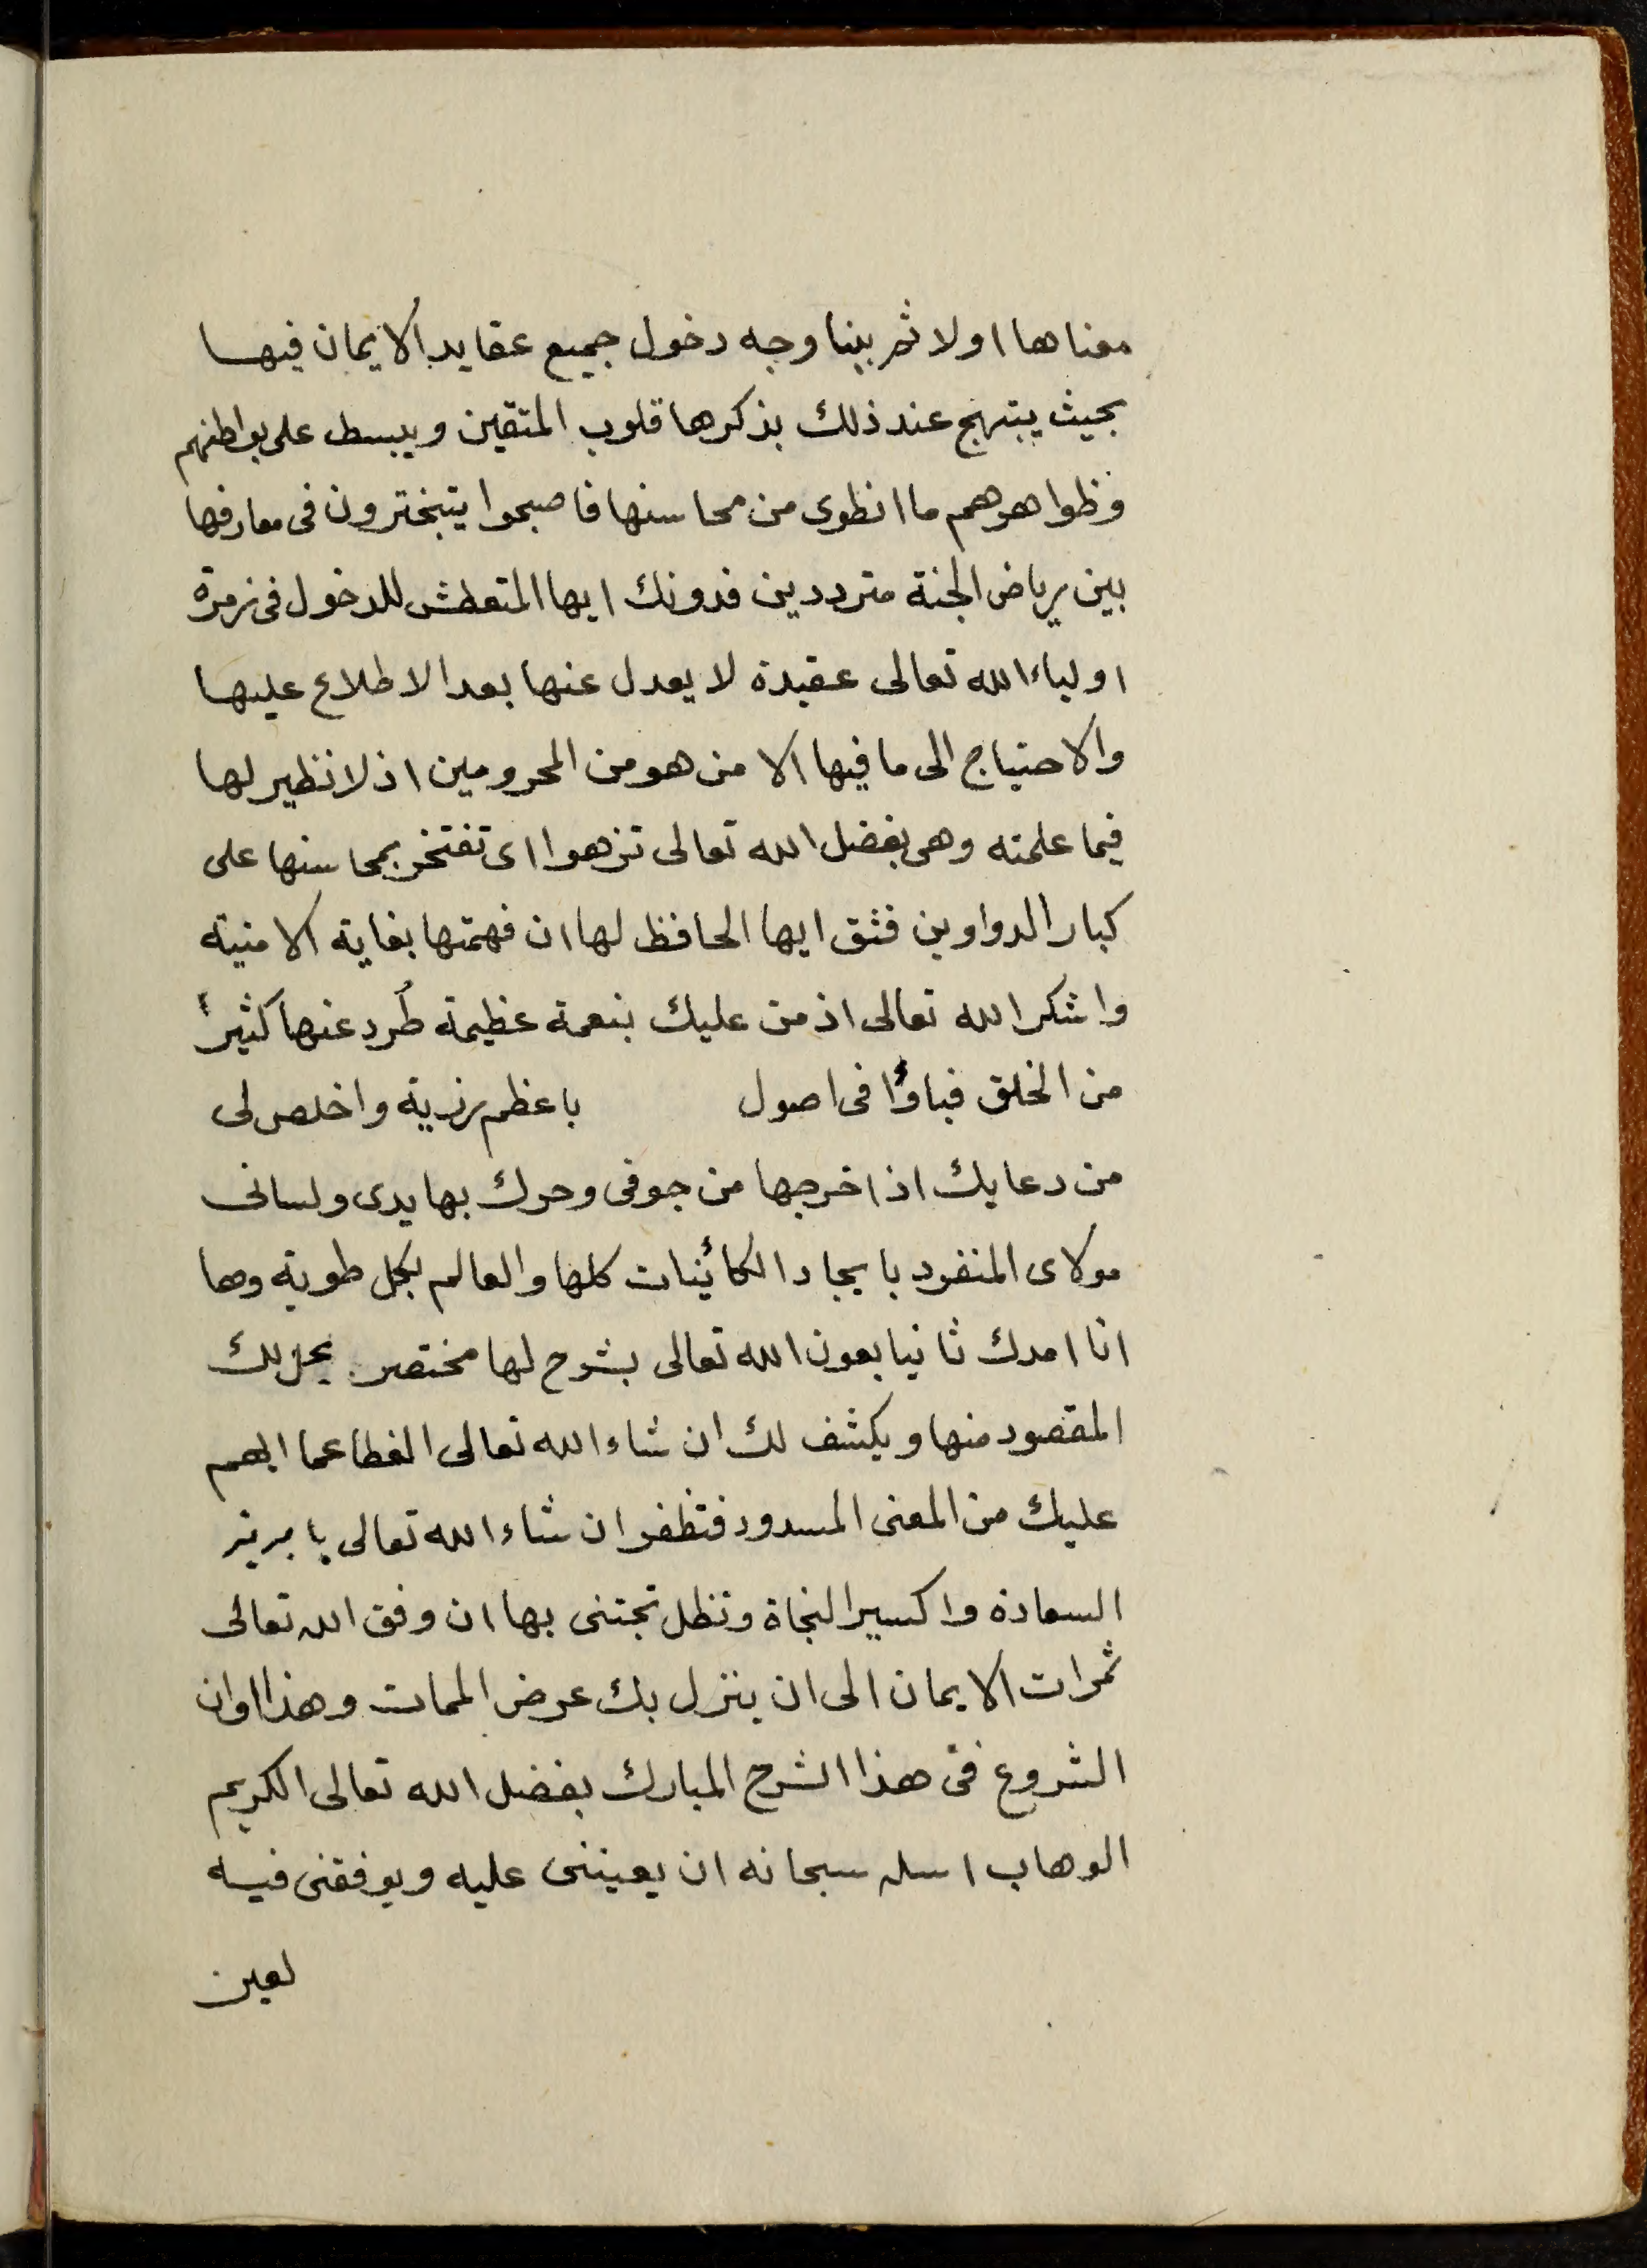 معناها اولا ثم بينا وجه دخول جميع عقايد الايمان فيها
بحيث يبتهج عند ذلك بذكرها قلوب المتقين ويبسط على بواطنهم
وظواهرهم ما انطوى من محاسنها فاصبحوا يتبخترون فى معارفها
بين رياض الجنة مترددين فدونك ايها المتعطش للدخول فى زمرة
اولياء الله تعالى عقيدة لا يعدل عنها بعد الاطلاع عليها
والاحتياج الى ما فيها الا من هو من المحرومين اذ لا نظير لها
فيما علمته وهى بفضل الله تعالى تزهوا اى تفتخر بمحاسنها على
كبار الدواوين فثق ايها الحافظ لها ان فهمتها بغاية الامنية
واشكر الله تعالى اذ من عليك بنعمة عظيمة طُرد عنها كثيرًا
من الخلق فباؤا فى اصول باعظم رزية واخلص لى
من دعايك اذ اخرجها من جوفى وحرك بها يدى ولسانى
مولاى المنفرد بايجاد الكائنات كلها والعالم بكل طوية وها
انا امدك ثانيا بعون الله تعالى بشرح لها مختصر يحل لك
المقصود منها ويكشف لك ان شاء الله تعالى الغطا عما ابهم
عليك من المعنى المسدود فتظفر ان شاء الله تعالى بابريز
السعادة واكسير النجاة وتظل تجتنى بها ان وفق الله تعالى
ثمرات الايمان الى ان ينزل بك عرض الممات وهذا اوان
الشروع فى هذا الشرح المبارك بفضل الله تعالى الكريم
الوهاب اسله سبحانه ان يعيننى عليه ويوفقنى فيه
لعين